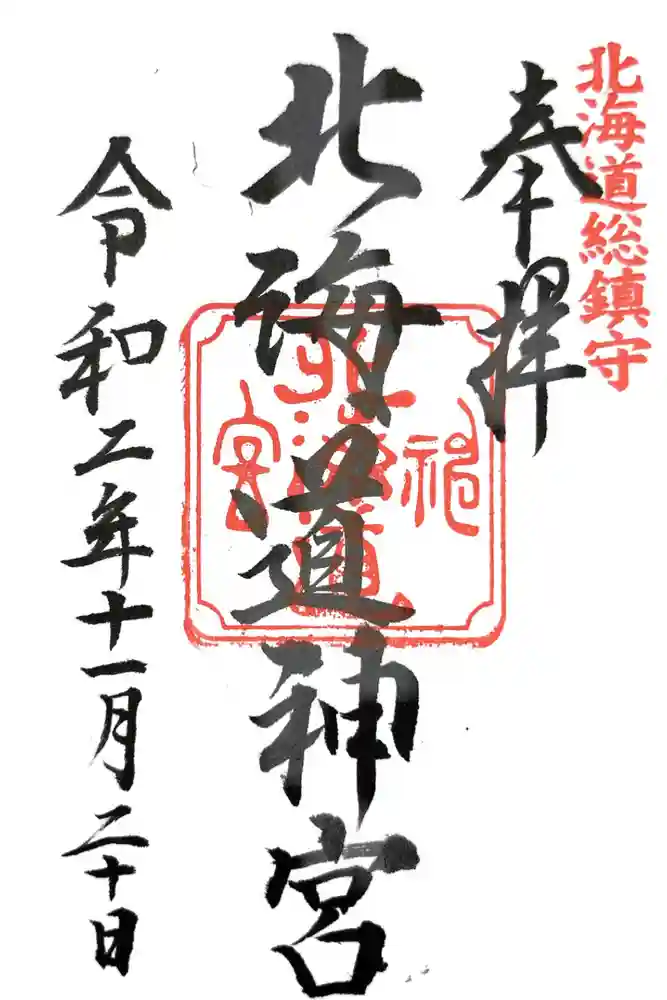 北海道総鎮守
奉拝
北海道神宮
北海道
神
宮
令和二年十一月二十日